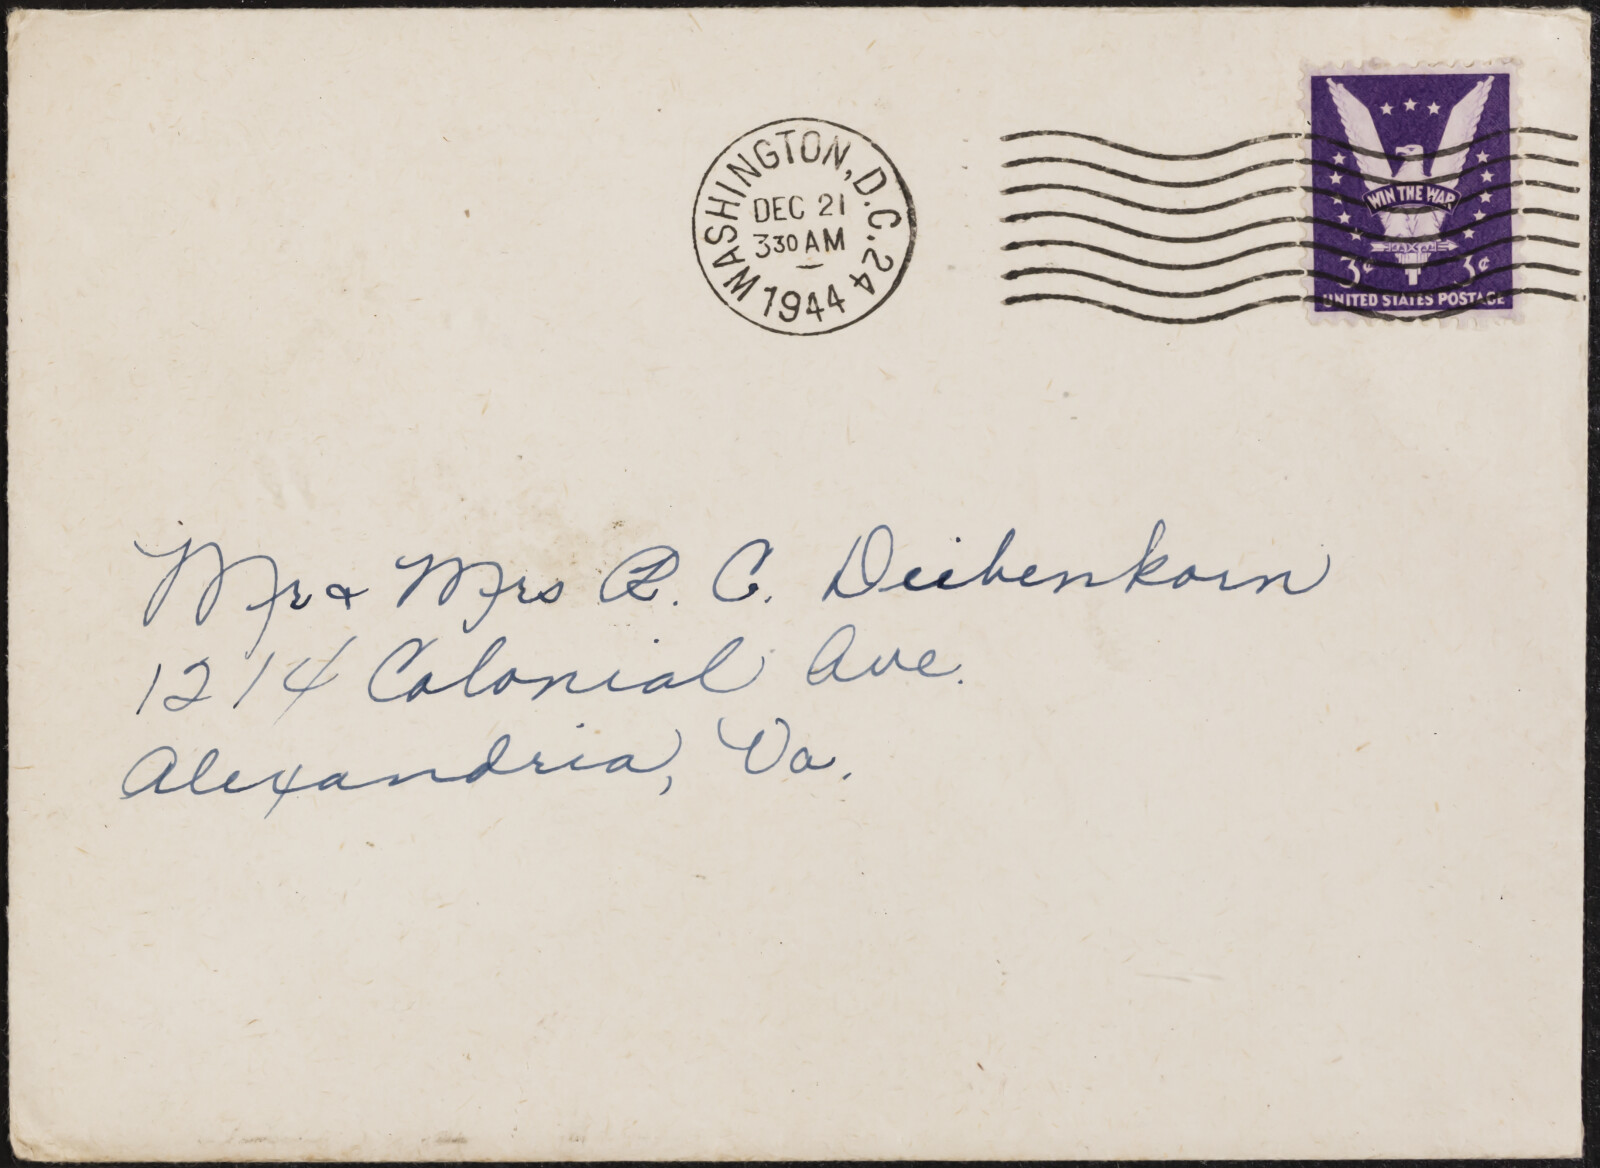 WASHINGTON, D.C. 24
DEC 21
3 30 AM
1944
WIN THE WAR
3¢ 3¢
UNITED STATES POSTAGE
Mr & Mrs R. C. Deibenkorn
1214 Colonial Ave.
Alexandria, Va.